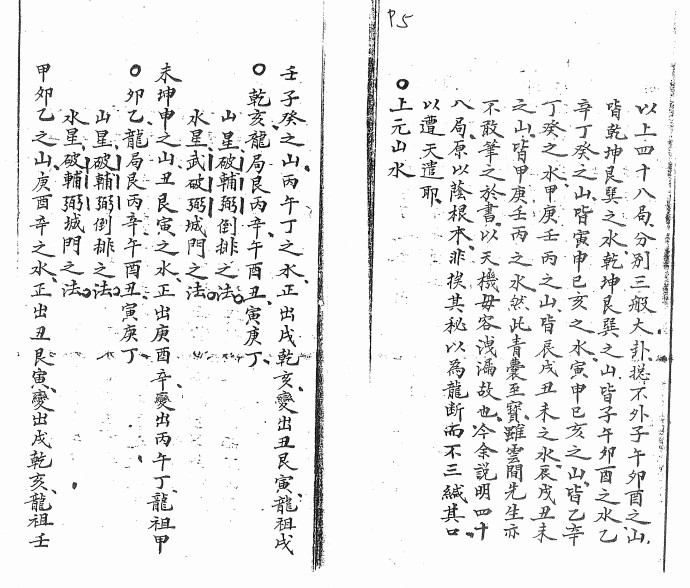 P5
以上四十八局分別三般大卦據不外子午卯酉之山
皆乾坤艮巽之水乾坤艮巽之山皆子午卯酉之水乙
辛丁癸之山皆寅申巳亥之水寅申巳亥之山皆乙辛
丁癸之水甲庚壬丙之山皆辰戌丑未之水辰戌丑未
之山皆甲庚壬丙之水然此青囊至寶雖雲間先生亦
不敢筆之於書以天機毋容洩漏故也今余説明四十
八局原以蔭根本非挨其秘以為龍断而不三緘其口
以遭天譴耶
○上元山水
壬子癸之山丙午丁之水正出戌乾亥變出丑艮寅龍祖戌
○乾亥龍局艮丙辛午酉丑寅庚丁
山星破輔弼倒排之法
水星武破弼城門之法
未坤申之山丑艮寅之水正出庚酉辛變出丙午丁龍祖甲
○卯乙龍局艮丙辛午酉丑寅庚丁
山星破輔弼倒排之法
水星破輔弼城門之法
甲卯乙之山庚酉辛之水正出丑艮寅變出戌乾亥龍祖壬